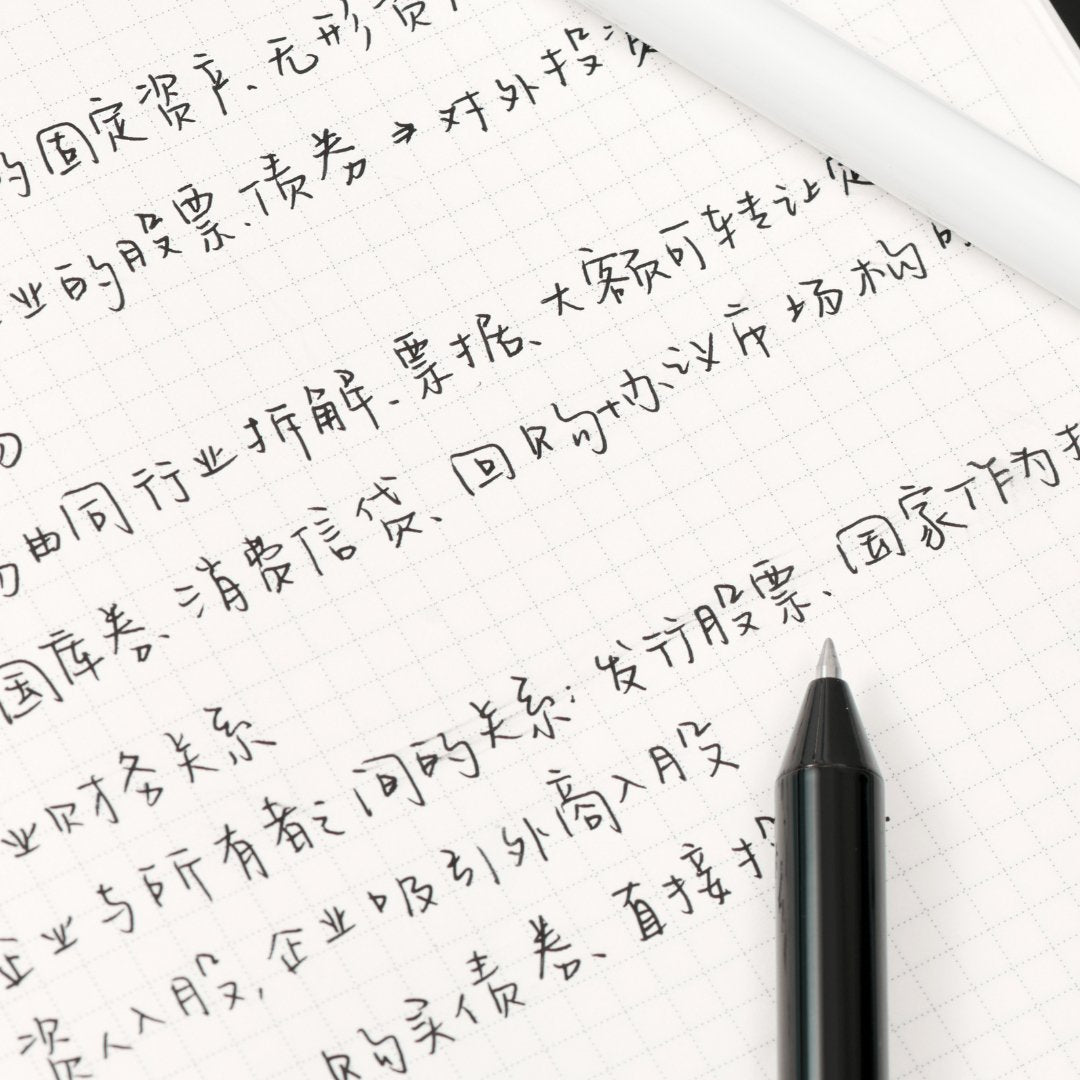 的固定资产、无形资
业的股票、债券 → 对外投资
由同行业拆解、票据、大额可转让定
国库券、消费信贷、回购协议市场构的
业财务关系
企业与所有者之间的关系：发行股票、国家作为
资人入股，企业吸引外商入股
购买债券、直接投